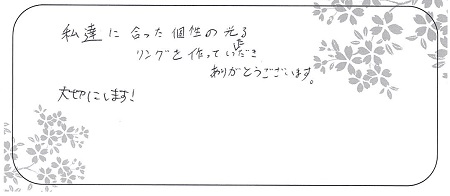 私達に合った個性の光る
リングを作っていただき
ありがとうございます。
大切にします!